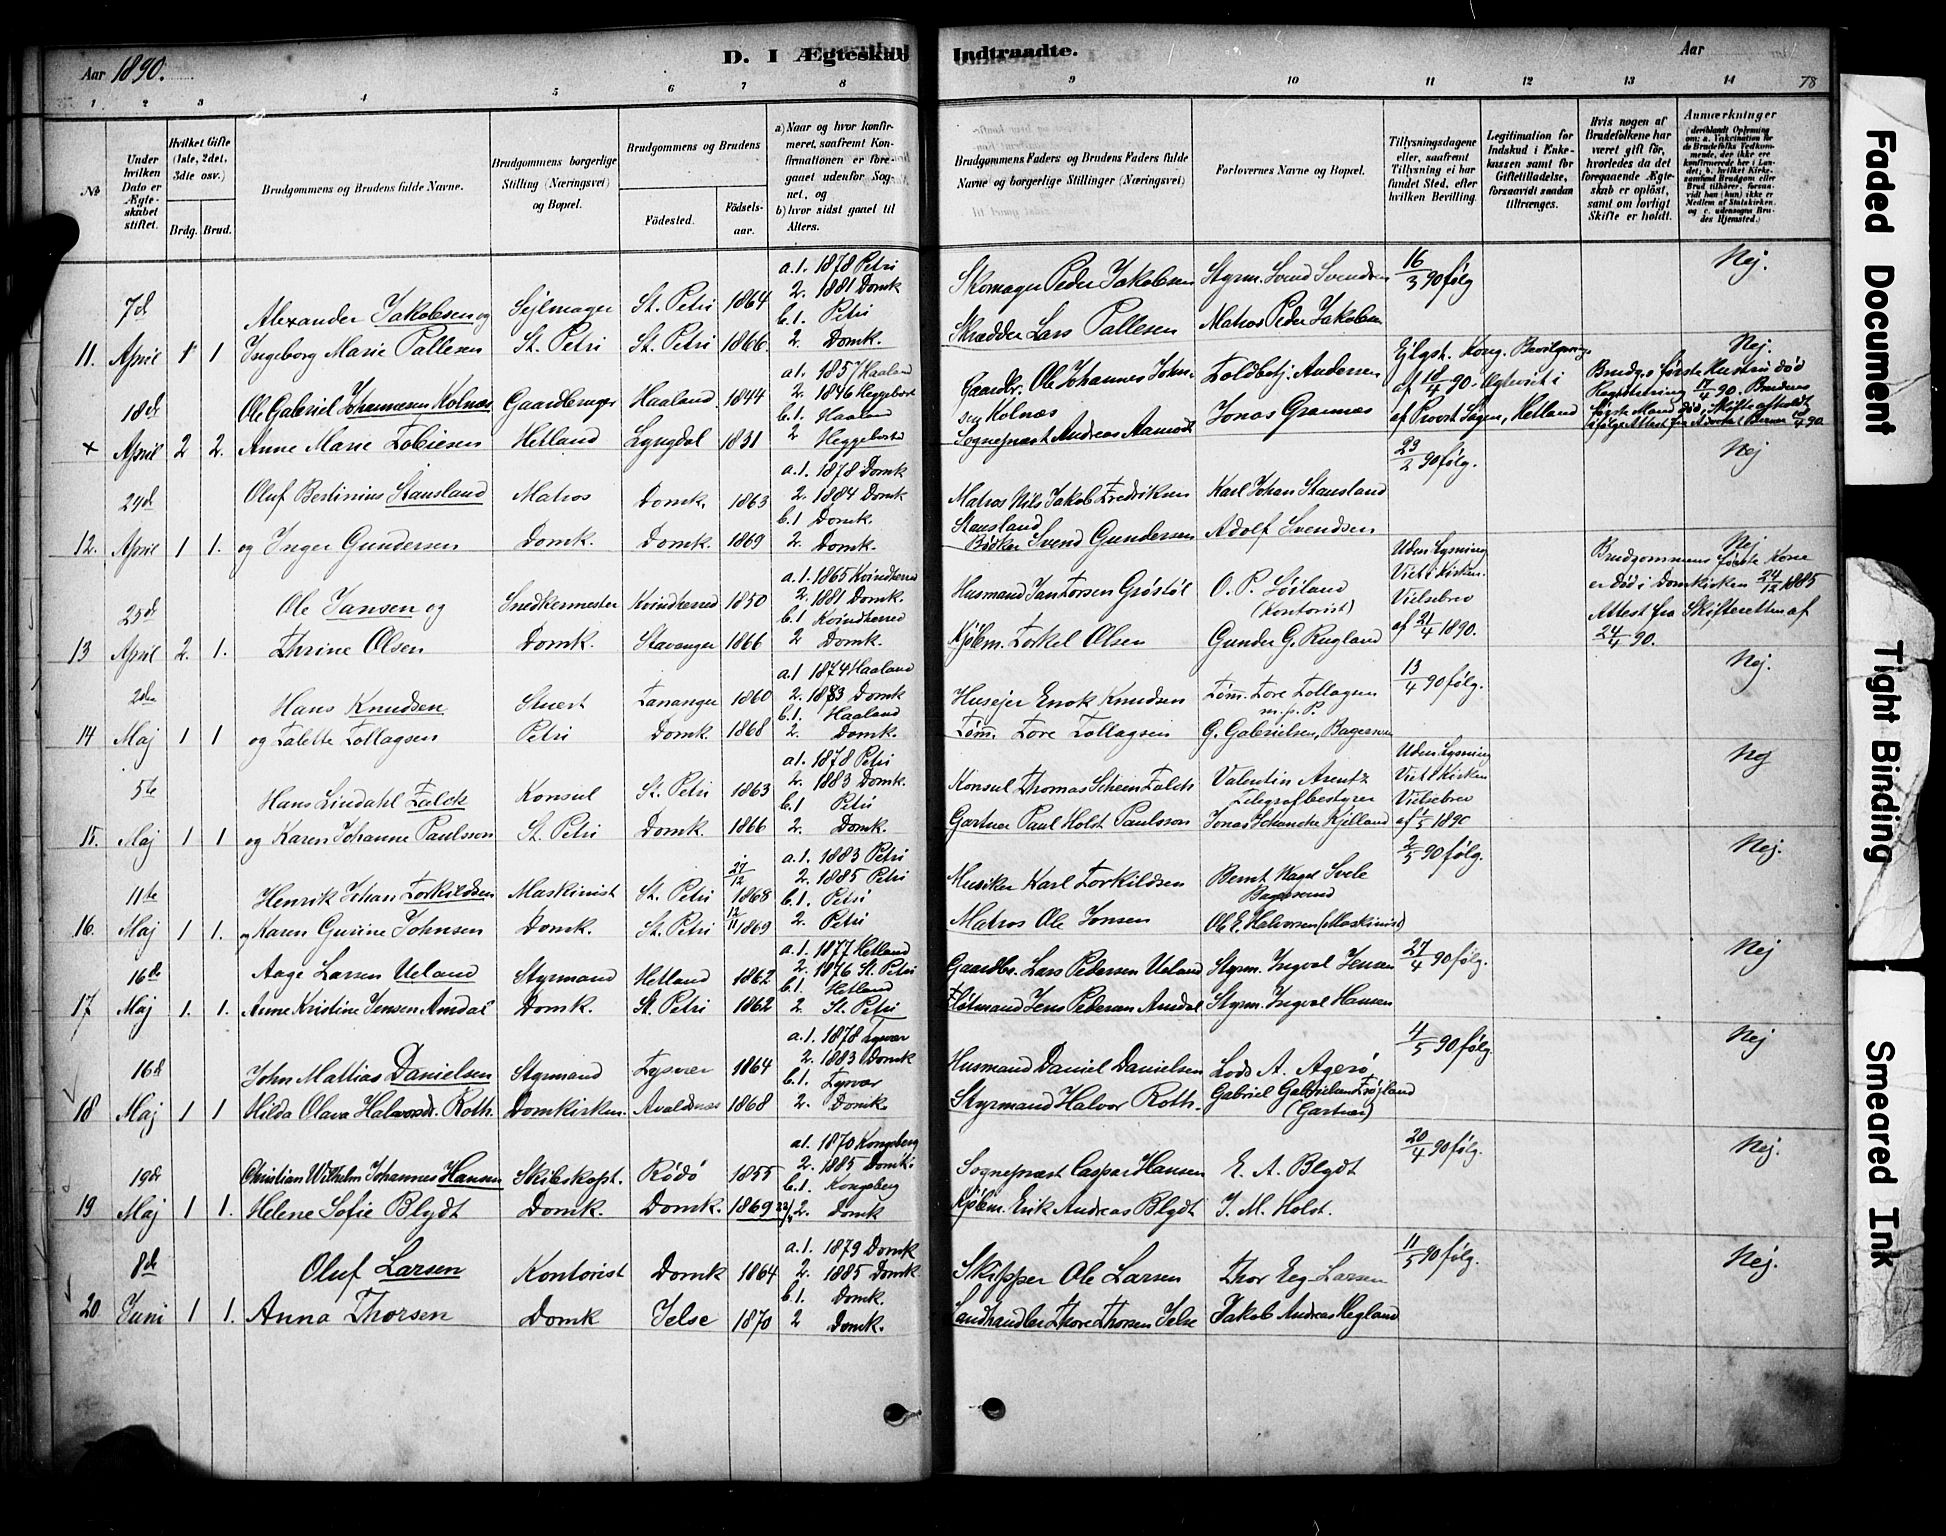 Aar 1890.
D. I Ægteskab Indtraadte.
Aar
78
1 2 3 4 5 6 7 8 9 10 11 12 13 14
No
Under hvilken Dato er Ægteskabet stiftet.
Hvilket Gifte (1ste, 2det, 3die osv.)
Brdg. Brud.
Brudgommens og Brudens fulde Navne.
Brudgommens borgerlige Stilling (Næringsvei) og Bopæl.
Brudgommens og Brudens
Födested. Födselsaar.
a) Naar og hvor konfirmeret, saafremt Konfirmationen er foregaaet udenfor Sognet, og
b) hvor sidst gaaet til Alters.
Brudgommens Faders og Brudens Faders fulde Navne og borgerlige Stillinger (Næringsvei)
Forlovernes Navne og Bopæl.
Tillysningsdagene eller, saafremt Tillysning ei har fundet Sted, efter hvilken Bevilling.
Legitimation for Indskud i Enkekassen samt for Giftetilladelse, forsaavidt saadan tiltrænges.
Hvis nogen af Brudefolkene har været gift för, hvorledes da det foregaaende Ægteskab er oplöst, samt om lovligt Skifte er holdt.
Anmærkninger
(deriblandt Oplysning om: a. Vakcination for de Brudefolks Vedkommende, der ikke ere konfirmerede her i Landet; b. hvilket Kirkesamfund Brudgom eller Brud tilhörer, forsaavidt han (hun) ikke er Medlem af Statskirken, og c. udensogns Brudes Hjemsted.)
7d Alexander Jakobsen og Sejlmager St. Petri 1864 a.1. 1878 Petri 2. 1881 Domk b.1. Petri Skomager Peder Jakobsen Styrm. Svend Svendsen 16/3 90 følg Nej.
11. April 1 1 Ingeborg Marie Pallesen St. Petri St. Petri 1866 2 Domk. Skrædder Lars Pallesen Matros Peder Jakobsen
18de Ole Gabriel Johannesen Kolnæs Gaardbruger Haaland 1844 a1. 1857 Haaland 2. 1846 Heggebost b.1. Haaland Gaardbr. Ole Johannes Kolnæs Toldbetj. Andersen Kong. Bevilgning af 18/4 90. Brudg.s første Hustru død Nej.
x April 2 2. Anne Marie Tobiesen Hetland Lyngdal 1831 2 Heggebostd Sognepræst Andreas Aamodt Jonas Grannæs af Provst Hetland
24d Oluf Bertinius Stausland Matros Domk. 1863 a.1. 1878 Domk 2. 1884 Domk b.1 Domk. Matros Nils Jakob Fredriksen Stausland Karl Johan Stausland 23/2 90 følg. Nej
12. April 1 1. og Inger Gundersen Domk. Domk. 1869 2. Domk. Bødker Svend Gundersen Adolf Svendsen
25d Ole Jansen og Snedkermester Kvindherred 1850 a.1. 1865 Kvindherred 2. 1881 Domk. b.1 Kvindherred Husmand Jan Larsen Grøstøl O. P. Soiland (Kontorist) Uden Lysning Viet i Kirken. Vielsebrev af 21/4 1890. Brudgommens første Kone er død i Domkirken 24/12 1885 Attest fra Skifteretten af 24/4 90. Nej
13 April 2. 1. Thrine Olsen Domk. Stavanger 1866 2 Domk. Kjøbm. Torkel Olsen Gunder G. Rugland
2den Hans Knudsen Stuert Tananger 1860 a.1 1874 Haaland 2. 1883 Domk b.1. Haaland Husejer Enok Knudsen Tømm. Tore Tollagsen m.p.P. 13/4 90 følg. Nej.
14 Maj 1 1 og Talette Tollagsen Petri Domk. 1868 2. Domk. Tømm. Tore Tollagsen G. Gabrielsen, Bagersvend
5te Hans Lindahl Falck Konsul St. Petri 1863 a1. 1878 Petri 2. 1883 Domk. b.1 Petri Konsul Thomas Scheen Falck Valentin Arentz Telegrafbestyrer Uden Lysning Viet i Kirken Vielsebrev af 1/5 1890 Nej
15. Maj 1 1 og Karen Johanne Paulsson St. Petri Domk. 1866 2. Domk. Gartner Paul Holst Paulsson Jonas Schancke Kjelland
11te Henrik Johan Torkildsen Maskinist St. Petri 27/12 1868 a.1. 1883 Petri 2. 1885 Petri b.1. Petri Musiker Karl Torkildsen Bernt Nagel Svele Bagersvend 2/5 90 følg. Nej.
16. Maj 1 1. og Karen Gurine Johnsen Domk. St. Petri 12/11 1869 2. Petri Matros Ole Jonsen Ole E. Halvorsen (Maskinist)
16de Aage Larsen Ueland Styrmand Hetland 1862 a.1. 1877 Hetland 2. 1876 St. Petri b.1. Hetland Gaardbr. Lars Pedersen Ueland Styrm. Ingval Jensen 27/4 90 følg. Nej
17 Maj 1. 1. Anne Kristine Jensen Amdal Domk. St. Petri 1862 2 St. Petri Flotmand Jens Pedersen Amdal Styrm. Ingval Hansen
16d John Mattias Danielsen Styrmand Tysvær 1864 a.1. 1878 Tysvær 2. 1883 Domk b.1. Tysvær Husmand Daniel Danielsen Lods A. Agerø 4/5 90 følg. Nej
18 Maj 1 1 Hilda Olava Halvorsdr. Roth. Domkirken Avaldsnæs 1868 2. Domk. Styrmand Halvor Roth. Gabriel Gabrielsen Trøjland (Gartner)
19d Christian Wilhelm Johannes Hansen Skibskapt. Rödö 1855 a1. 1870 Kongsberg 2. 1885 Domk. b.1. Kongsberg Sognepræst Caspar Hansen E. A. Blydt 20/4 90 følg. Nej.
19 Maj 1 1. Helene Sofie Blydt Domk. Domk. 1869 2. Domk Kjøbm. Erik Andreas Blydt J. M. Holst.
8de Oluf Larsen Kontorist Domk 1864 a.1. 1879 Domk 2. 1885 Domk b.1. Domk. Skipper Ole Larsen Thor Eeg-Larsen 11/5 90 følg. Nej.
20 Juni 1 1. Anna Thorsen Domk Jelse 1870 2 Domk. Landhandler Thore Thorsen Jelse Jakob Andreas Hegland
Faded Document
Tight Binding
Smeared Ink